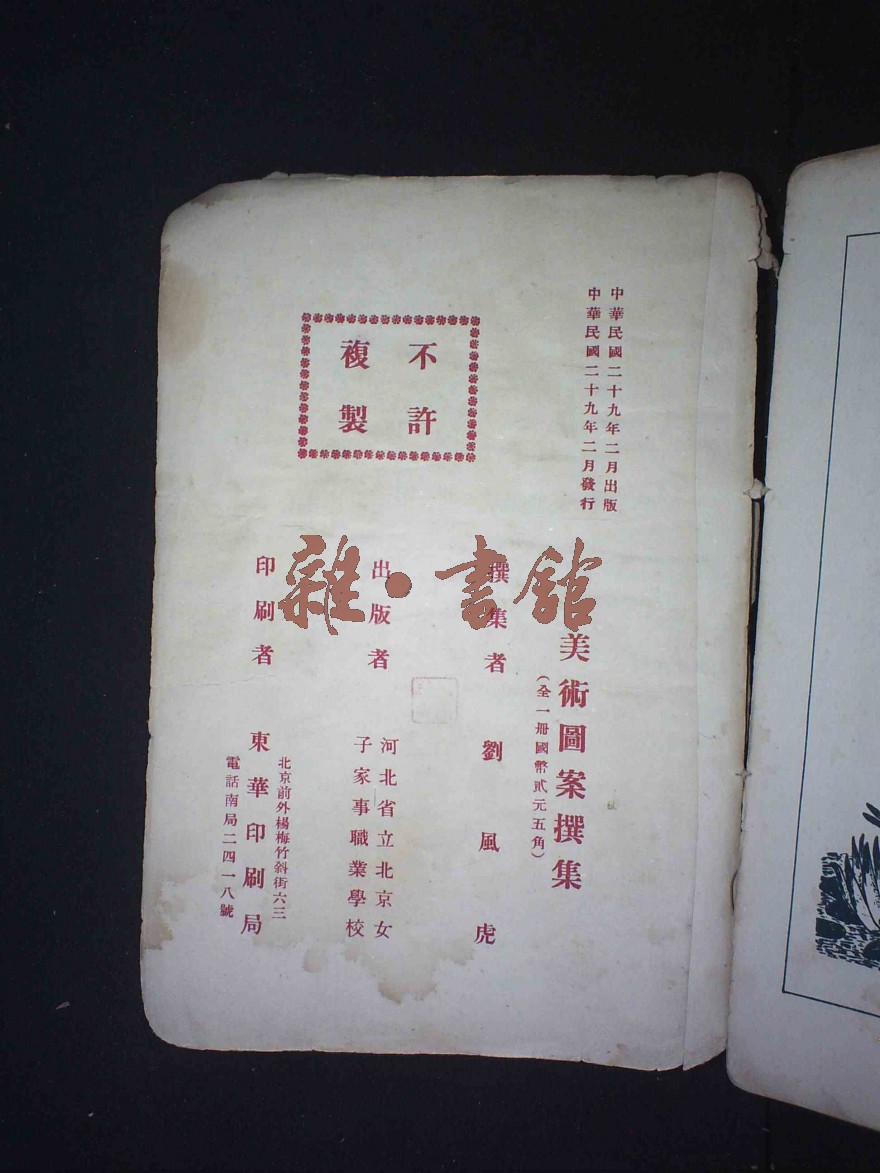 中華民國二十九年二月出版
中華民國二十九年二月發行
不許
複製
美術圖案撰集
(全一冊國幣貳元五角)
撰集者 劉風虎
出版者 河北省立北京女
子家事職業學校
印刷者 東華印刷局
北京前外楊梅竹斜街六三
電話南局二四一八號
雜·書館